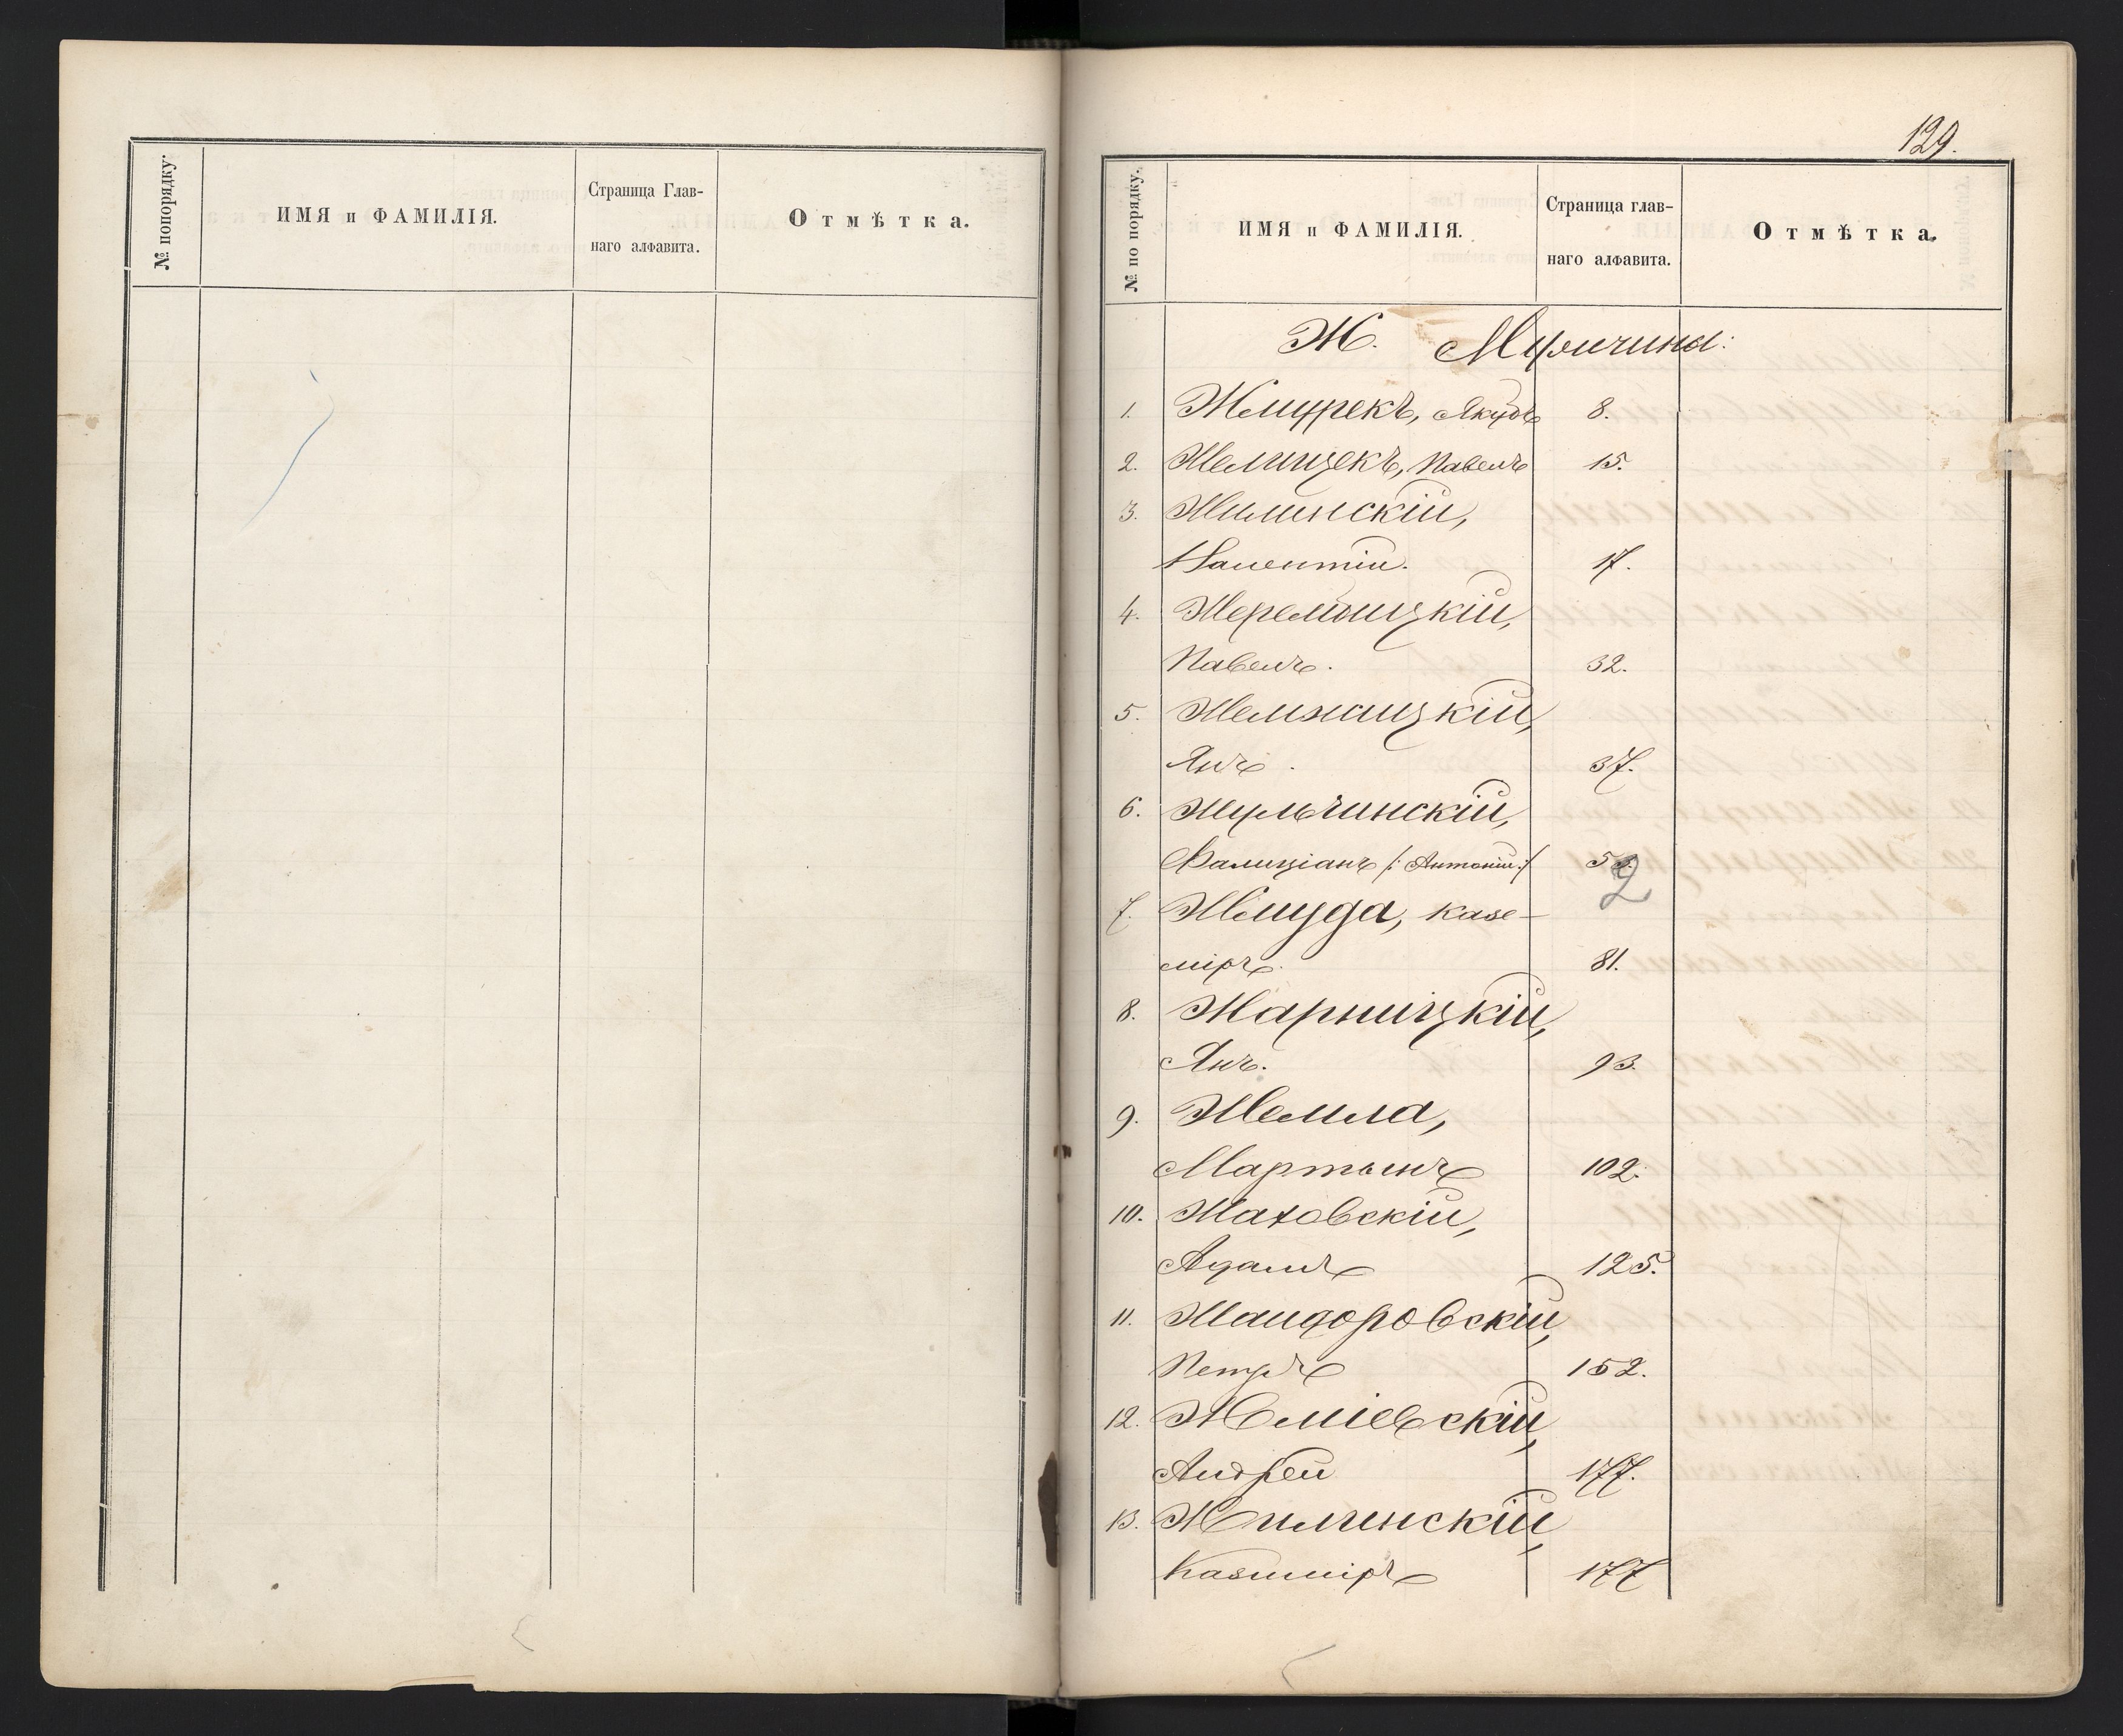 № попорядку.
ИМЯ и ФАМИЛІЯ.
Страница Глав-
наго алфавита.
Отмѣтка.
129.
№ по порядку.
ИМЯ и ФАМИЛІЯ.
Страница глав-
наго алфавита.
Отмѣтка.
Ж. Мужчины:
1. Жмурекъ, Якубъ 8.
2. Павелъ 15.
3. Жилинскій,
17.
4.
Павелъ. 32.
5.
Янъ. 37.
6. Жульчинскій,
Фалиціанъ /: Антоній :/
2
7. Жмуда, Казе-
міръ. 81.
8. Жарницкій,
Янъ. 93.
9. Жемла,
Мартынъ 102.
10. Маховскій,
Адамъ 125.
11.
Петръ 152.
12. Жміевскій,
Андрей 177.
13. Жилинскій,
Казиміръ 177